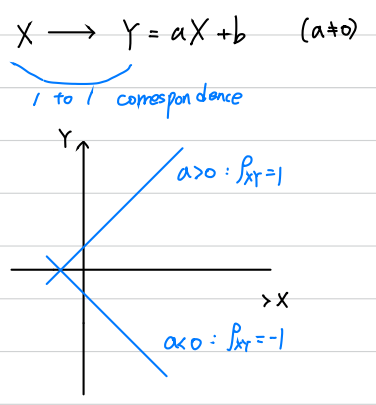 X ⟶ Y = aX + b (a≠0)
1 to 1 correspondence
Y
a>0 : ρXY = 1
X
a<0 : ρXY = -1